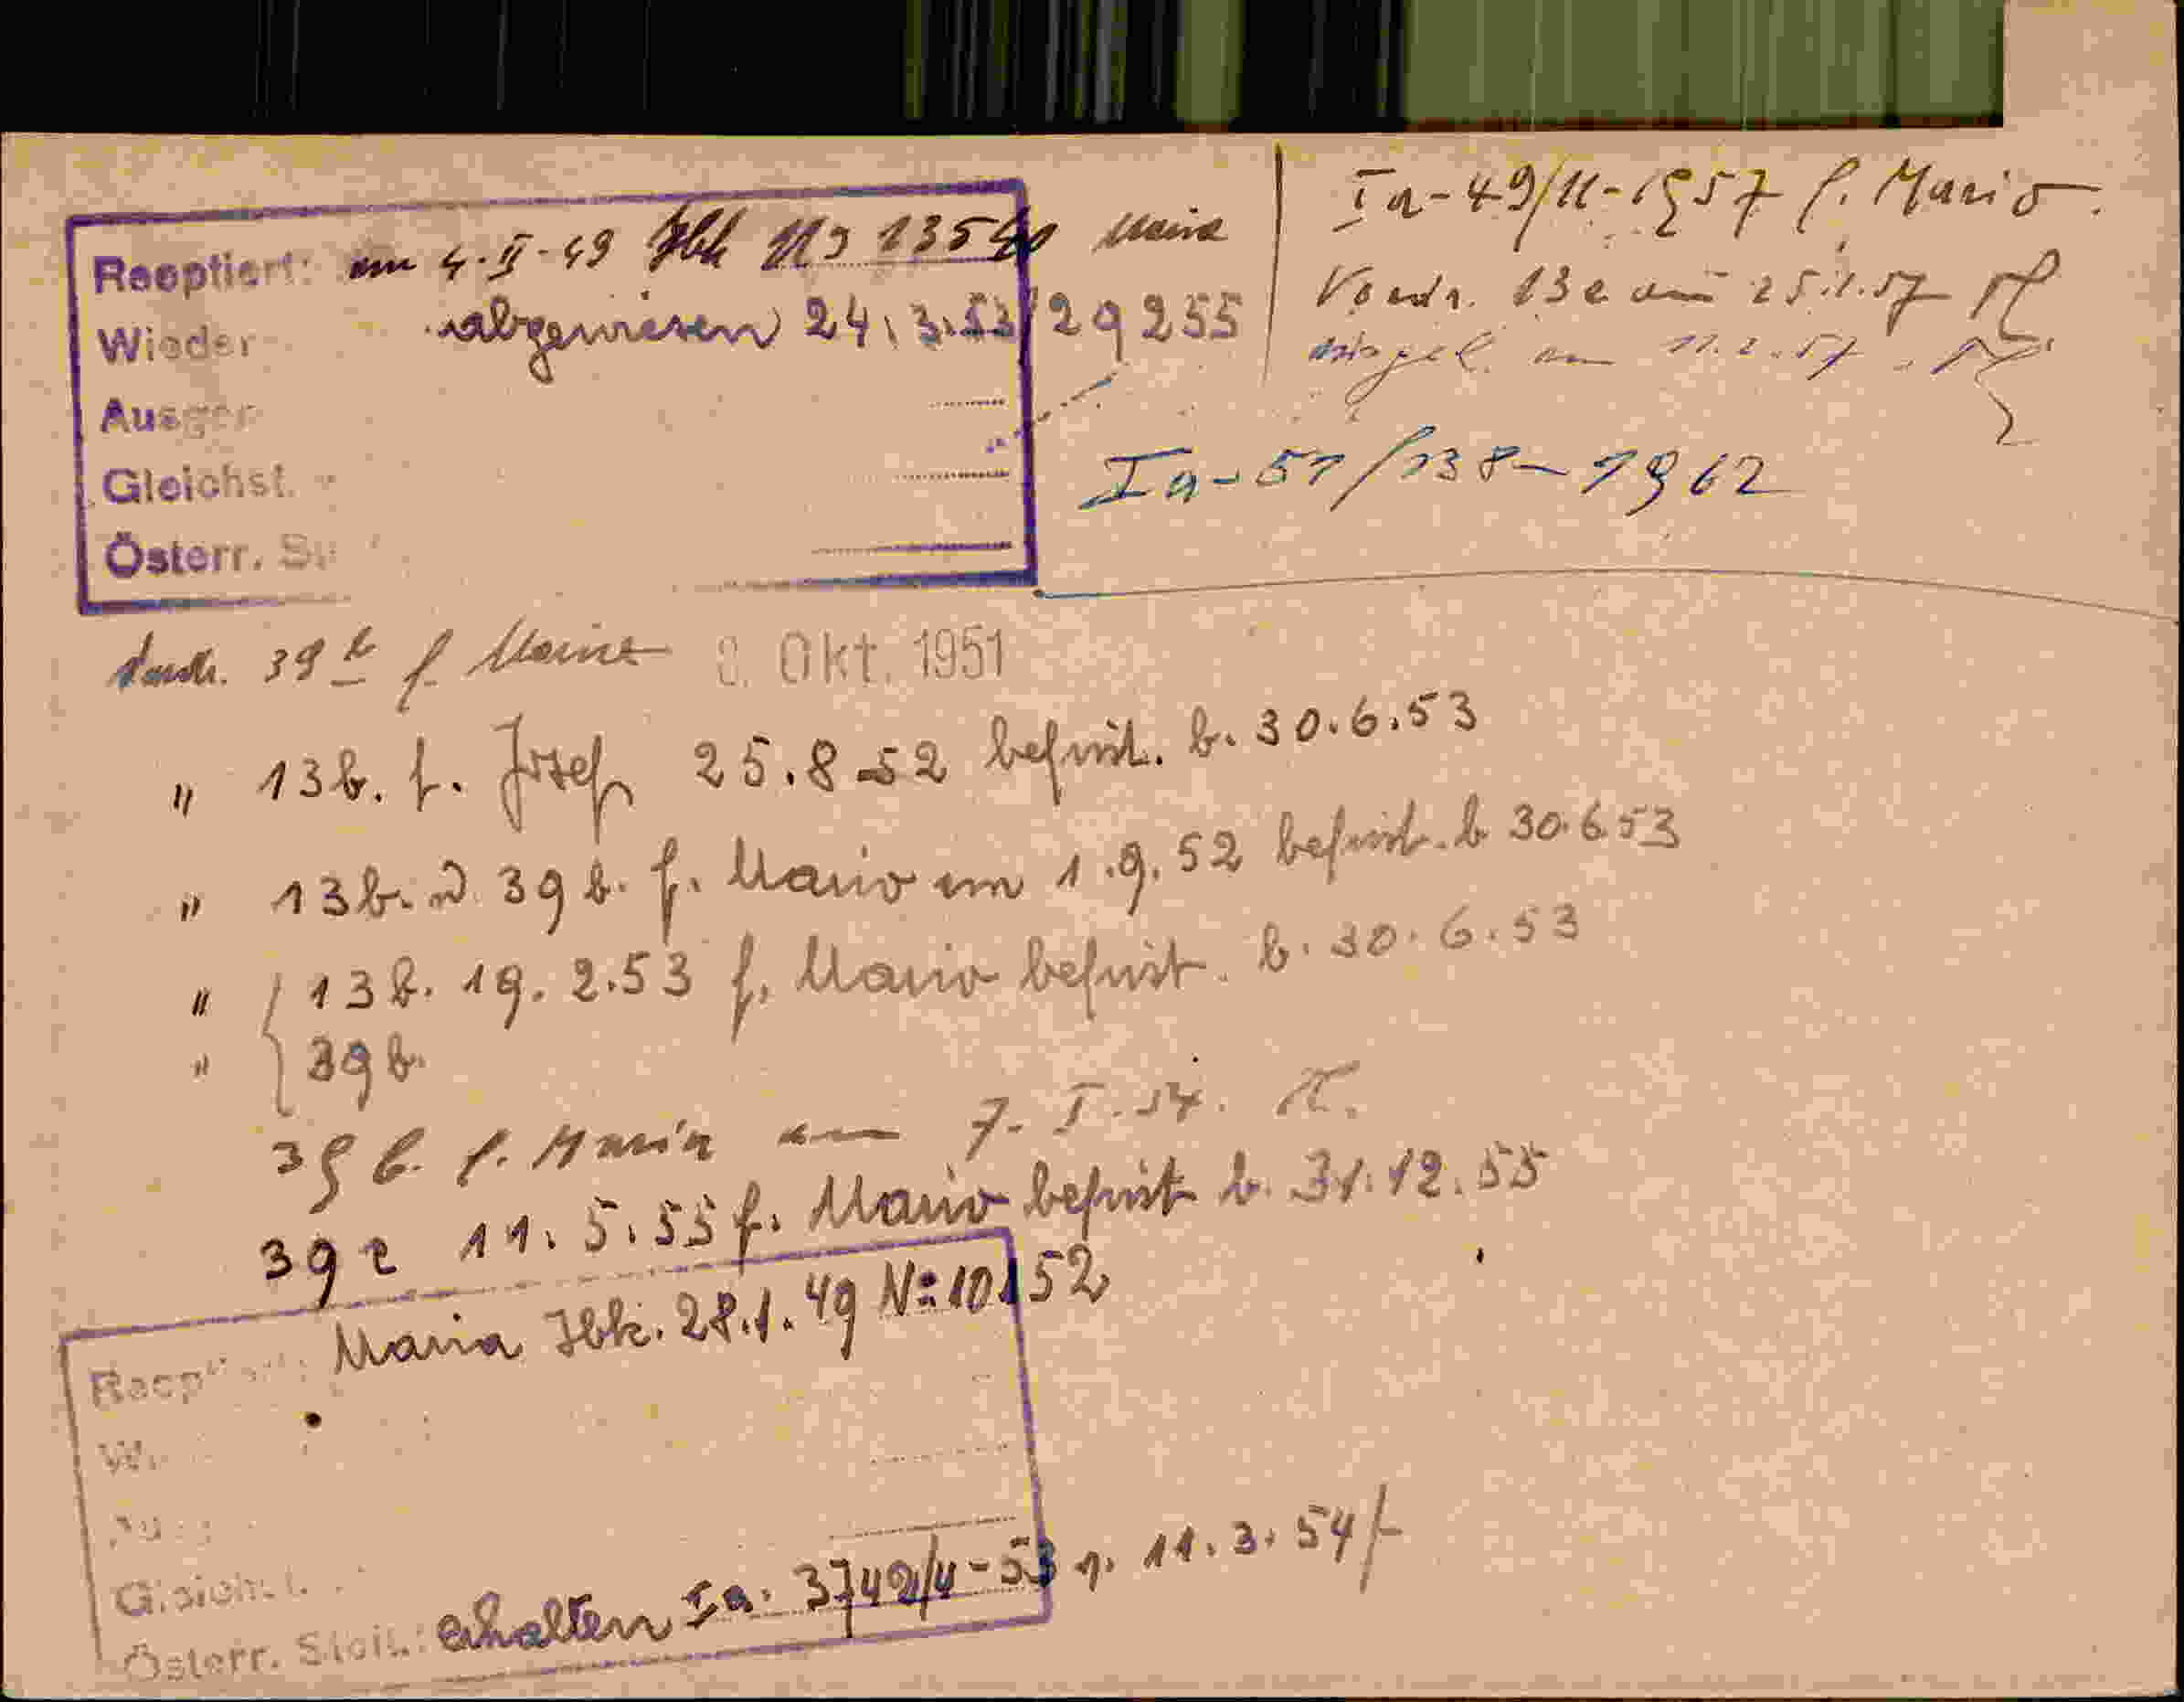 Reoptiert: am 4.II-49 Jbk No 13540 Maria
Wieder abgewiesen 24.3.53/29255
Ausger
Gleichst.
Österr. St
Ia-49/11-1957 f. Mario
Vordr. 13e am 25.1.57
am 11.2.57
Ia-51/138-1962
Vordr. 39b f. Mario 8. Okt. 1951
" 13b. f. Josef 25.8.52 befrist. b. 30.6.53
" 13b. 39b. f. Mario am 1.9.52 befrist. b 30.6.53
" 13b. 19.2.53 f. Mario befrist. b. 30.6.53
" 39b.
39b. f. Maria am 7.I.54.
39e 11.5.55 f. Mario befrist b. 31.12.55
Reoptiert: Maria Jbk. 28.1.49 No 10152
W
Gleichst.
Österr. Stbü.: erhalten Ia. 3742/4-53 v. 11.3.54/-